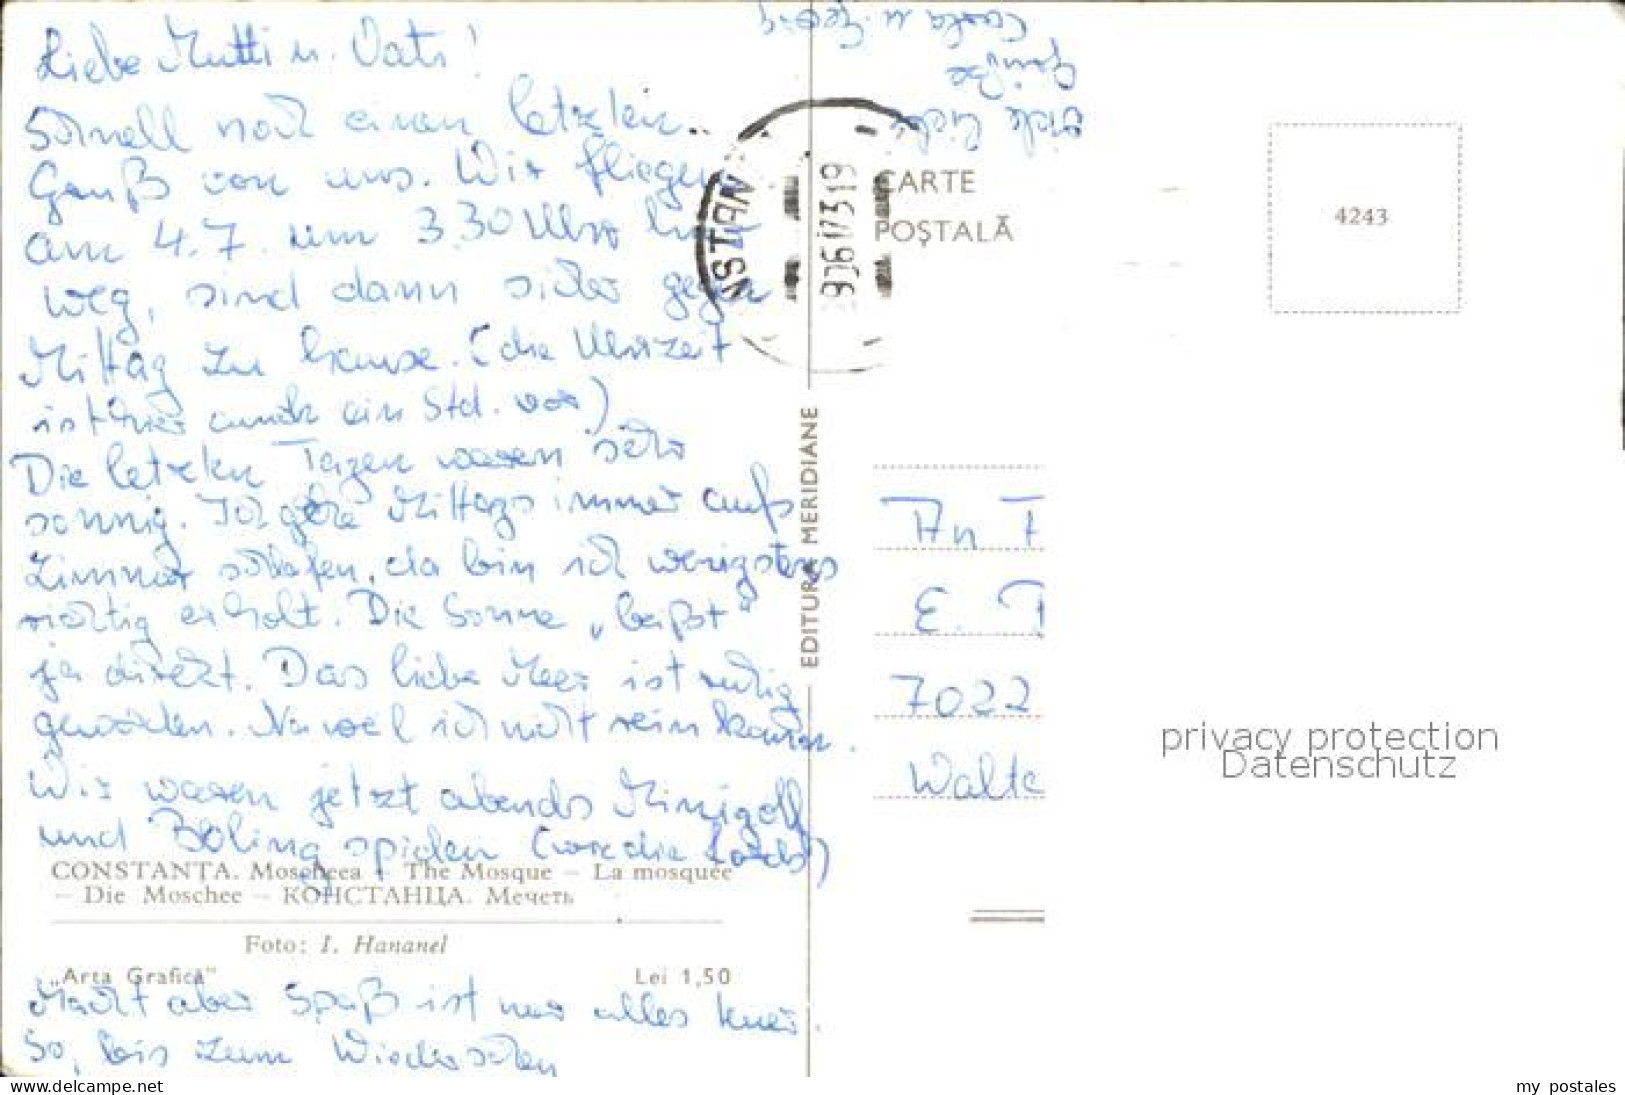 Liebe Mutti u. Vati!
Schnell noch einen letzten
Gruß von uns. Wir fliegen
am 4.7. um 3.30 Uhr hier
weg, sind dann sicher gegen
Mittag zu hause. (die Uhrzeit
ist hier auch ein Std. vor)
Die letzten Tagen waren sehr
sonnig. Ich gehe Mittags immer aufs
Zimmer schlafen, da bin ich wenigstens
richtig erholt. Die Sonne „beißt“
ja direkt. Das liebe Meer ist ruhig
geworden. Na weil ich nicht rein kann.
Wir waren jetzt abends Minigolf
und Boling spielen (wie die Lords)
CONSTANTA. Moscheea – The Mosque – La mosquée
– Die Moschee – КОНСТАНЦА. Мечеть
Foto: I. Hananel
„Arta Grafică” Lei 1,50
Macht aber Spaß ist nur alles teuer.
So, bis zum Wiedersehen
Viele liebe
Grüße
u. Georg
EDITURA MERIDIANE
NSTAN
CARTE
POȘTALĂ
4243
An F
E. T
7022
Walte
privacy protection
Datenschutz
www.delcampe.net
my postales